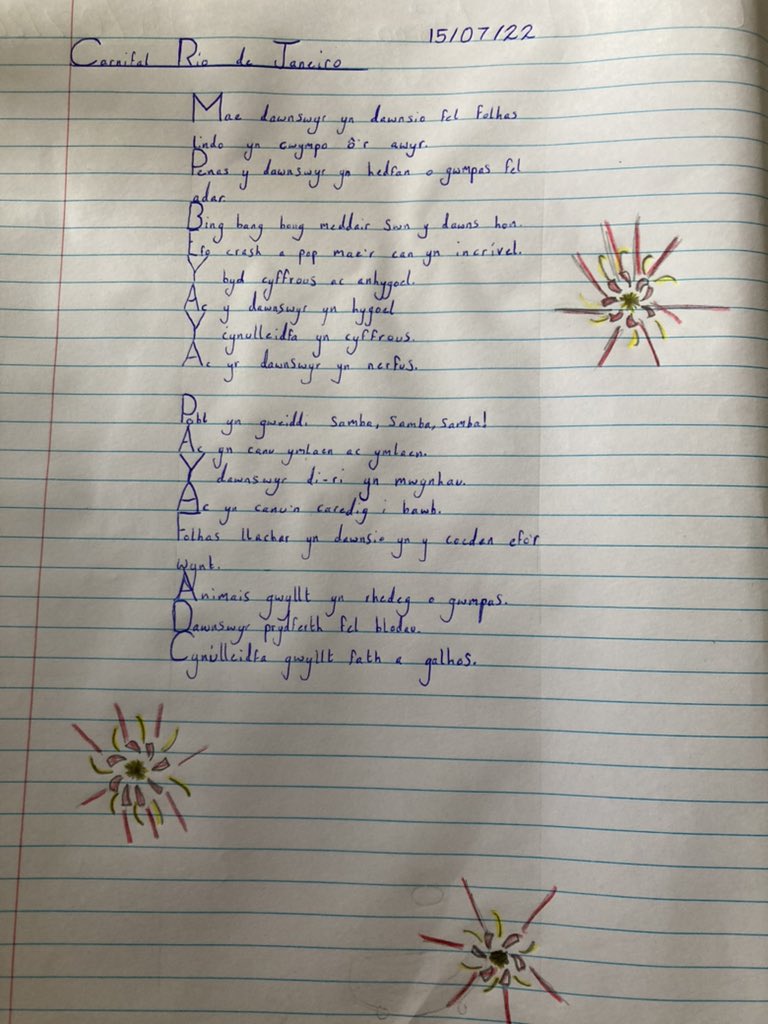 15/07/22
Carnifal Rio de Janeiro
Mae dawnswyr yn dawnsio fel folhas
lindo yn cwympo ô'r awyr.
Penas y dawnswyr yn hedfan o gwmpas fel
adar.
Bing bang bong meddair swn y dawns hon.
Efo crash a pop mae'r can yn incrível.
Y byd cyffrous ac anhygoel.
Ac y dawnswyr yn hygoel
Y cynulleidfa yn cyffrous.
Ac yr dawnswyr yn nerfus.
Pobl yn gweiddi Samba, Samba, Samba!
Ac yn canu ymlaen ac ymlaen.
Y dawnswyr di-ri yn mwynhau.
Ac yn canu'n caredig i bawb.
Folhas llachar yn dawnsio yn y coeden efo'r
wynt.
Animais gwyllt yn rhedeg o gwmpas.
Dawnswyr prydferth fel blodau.
Cynulleidfa gwyllt fath a galhos.